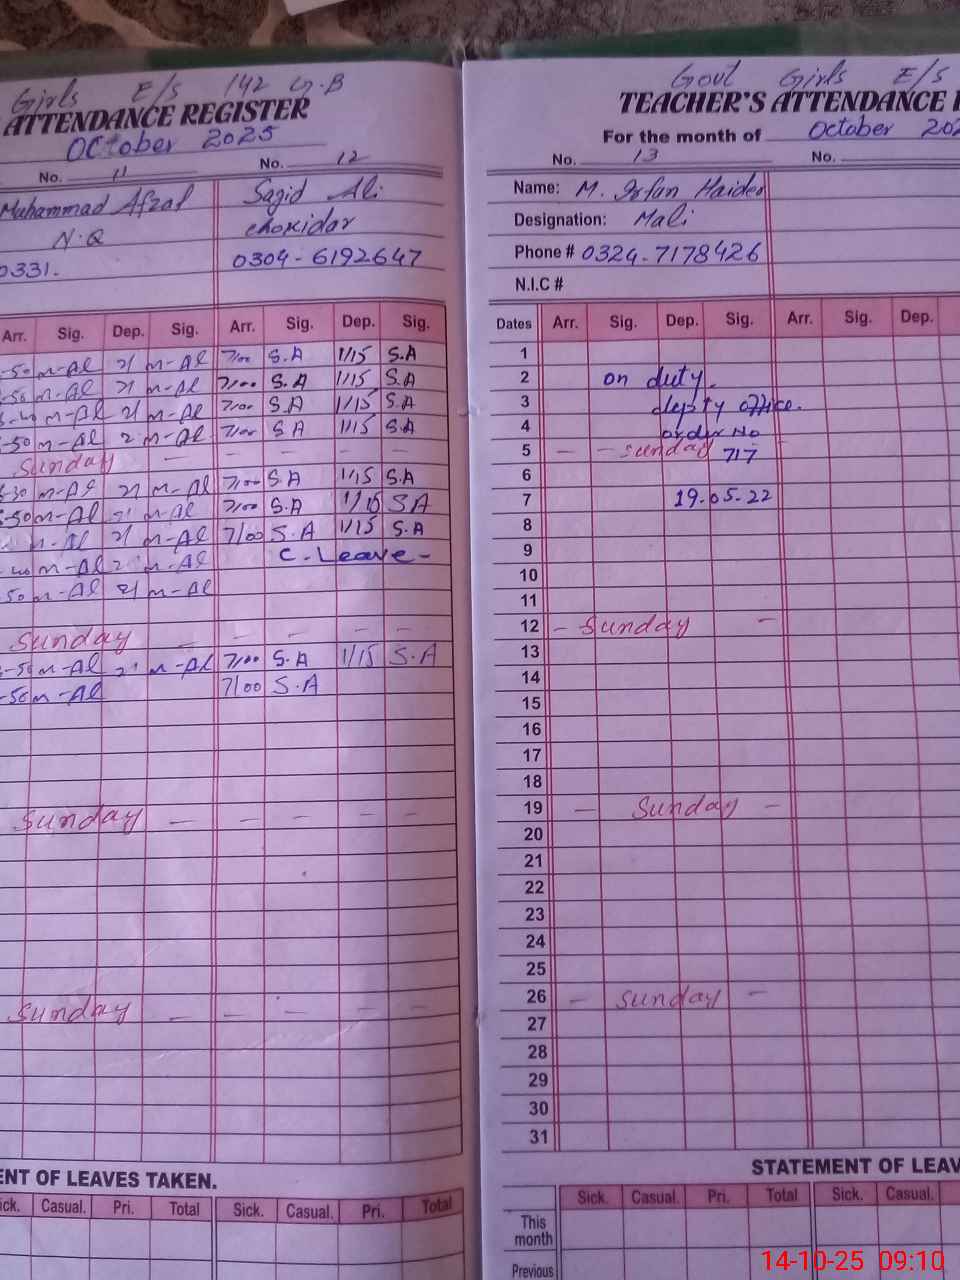 Girls E/S 142 G.B
ATTENDANCE REGISTER
October 2025
No. 11 No. 12
Muhammad Afzal Sajid Ali
N.Q chokidar
0331. 0304-6192647
Arr. Sig. Dep. Sig. Arr. Sig. Dep. Sig.
-50 m-Al 2/ m-Al 7/00 S.A 1/15 S.A
-50 m-Al 2/ m-Al 7/00 S.A 1/15 S.A
-40 m-Al 2/ m-Al 7/00 S.A 1/15 S.A
-50 m-Al 2 m-Al 7/00 S A 1/15 S.A
Sunday — — — — — —
-30 m-Al 2/ m-Al 7/00 S.A 1/15 S.A
-50 m-Al 2/ m-Al 7/00 S.A 1/15 S A
m-Al 2/ m-Al 7/00 S.A 1/15 S.A
-40 m-Al 2 m-Al C-Leave-
50 m-Al 2/ m-Al
Sunday — — — — — —
-50 m-Al 2/ m-Al 7/00 S.A 1/15 S.A
-50 m-Al 7/00 S.A
Sunday — — — — —
Sunday — — — — —
ENT OF LEAVES TAKEN.
Sick. Casual. Pri. Total Sick. Casual. Pri. Total
Govt Girls E/S
TEACHER'S ATTENDANCE
For the month of October 202
No. 13 No.
Name: M. Irfan Haider
Designation: Mali
Phone # 0324-7178426
N.I.C #
Dates Arr. Sig. Dep. Sig. Arr. Sig. Dep.
1
2 on duty.
3 depty office.
4 order No
5 — — Sunday 717
6
7 19.05.22
8
9
10
11
12 — Sunday —
13
14
15
16
17
18
19 — Sunday —
20
21
22
23
24
25
26 — Sunday —
27
28
29
30
31
STATEMENT OF LEAV
Sick. Casual. Pri. Total Sick. Casual.
This
month
Previous
14-10-25 09:10